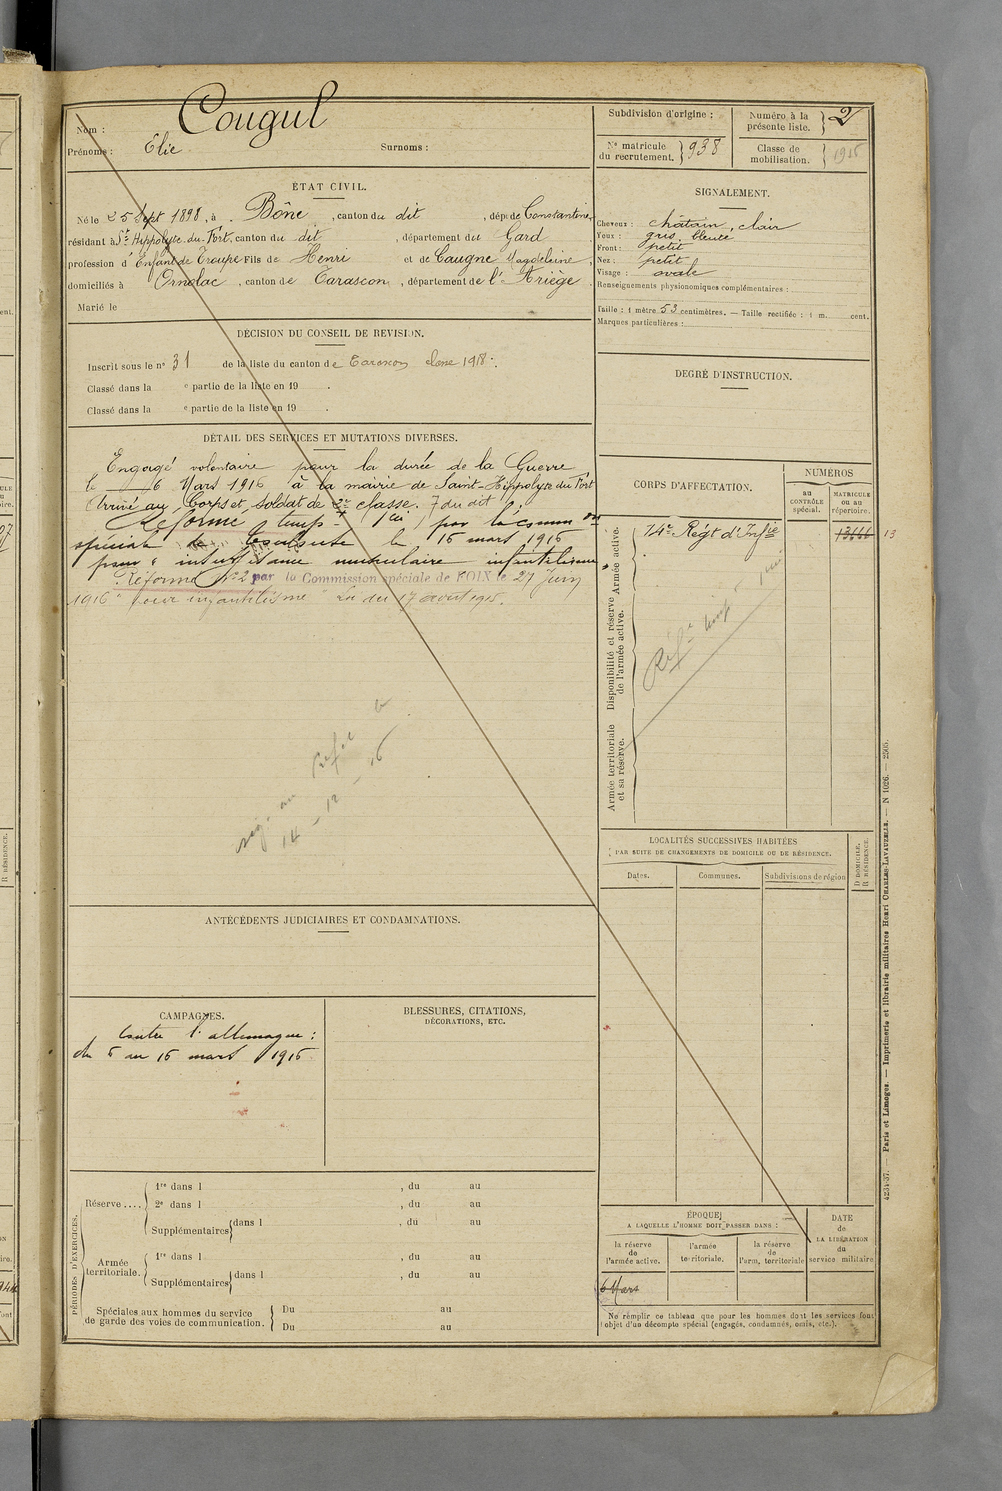 Nom : Cougul
Prénoms : Elie Surnoms :
Subdivision d'origine :
Numéro à la présente liste. } 2
No matricule du recrutement. } 938
Classe de mobilisation. } 1916
ÉTAT CIVIL.
Né le 25 Sept 1898, à Bône, canton du dit, dép. de Constantine,
résidant à St Hippolyte du Fort, canton du dit, département du Gard
profession d'Enfant de Troupe Fils de Henri et de Caugne Magdeleine,
domiciliés à Ornolac, canton de Tarascon, département de l'Ariège
Marié le
SIGNALEMENT.
Cheveux : châtain, clair
Yeux : gris, bleuté
Front : petit
Nez : petit
Visage : ovale
Renseignements physionomiques complémentaires :
Taille : 1 mètre 53 centimètres. — Taille rectifiée : 1 m. cent.
Marques particulières :
DÉCISION DU CONSEIL DE REVISION.
Inscrit sous le no 31 de la liste du canton de Tarascon classe 1918.
Classé dans la e partie de la liste en 19 .
Classé dans la e partie de la liste en 19 .
DEGRÉ D'INSTRUCTION.
DÉTAIL DES SERVICES ET MUTATIONS DIVERSES.
Engagé volontaire pour la durée de la Guerre
le 6 Mars 1916 à la mairie de Saint-Hippolyte du Fort
Arrivé au Corps et soldat de 2e classe. 7 du dit
Réformé temp. 1 par la comm on
spéciale de le 16 mars 1916
pour "insuffisance musculaire infantilisme"
Réformé No 2 par la Commission spéciale de FOIX le 27 Juin
1916 "pour infantilisme" Loi du 17 août 1915.
14 - 12 - 16
CORPS D'AFFECTATION.
NUMÉROS
au CONTRÔLE spécial.
MATRICULE ou au répertoire.
Armée active.
74e Régt d'Infie
13
Disponibilité et réserve de l'armée active.
Réf. temp. 1
Armée territoriale et sa réserve.
LOCALITÉS SUCCESSIVES HABITÉES
PAR SUITE DE CHANGEMENTS DE DOMICILE OU DE RÉSIDENCE.
Dates.
Communes.
Subdivisions de région
D DOMICILE.
R RÉSIDENCE.
ANTÉCÉDENTS JUDICIAIRES ET CONDAMNATIONS.
CAMPAGNES.
Contre l'allemagne :
du 6 au 16 mars 1916
BLESSURES, CITATIONS,
DÉCORATIONS, ETC.
PÉRIODES D'EXERCICES.
Réserve ....
1re dans l , du au
2e dans l , du au
Supplémentaires { dans l , du au
Armée territoriale.
1re dans l , du au
Supplémentaires { dans l , du au
Spéciales aux hommes du service de garde des voies de communication.
Du au
Du au
ÉPOQUE
A LAQUELLE L'HOMME DOIT PASSER DANS :
la réserve de l'armée active.
l'armée territoriale.
la réserve de l'arm. territoriale
DATE de LA LIBÉRATION du service militaire
6 Mars
Ne remplir ce tableau que pour les hommes dont les services font
l'objet d'un décompte spécial (engagés, condamnés, omis, etc.).
4234-37. — Paris et Limoges. — Imprimerie et librairie militaires Henri CHARLES-LAVAUZELLE. — N 1026. — 2905.
R RÉSIDENCE.